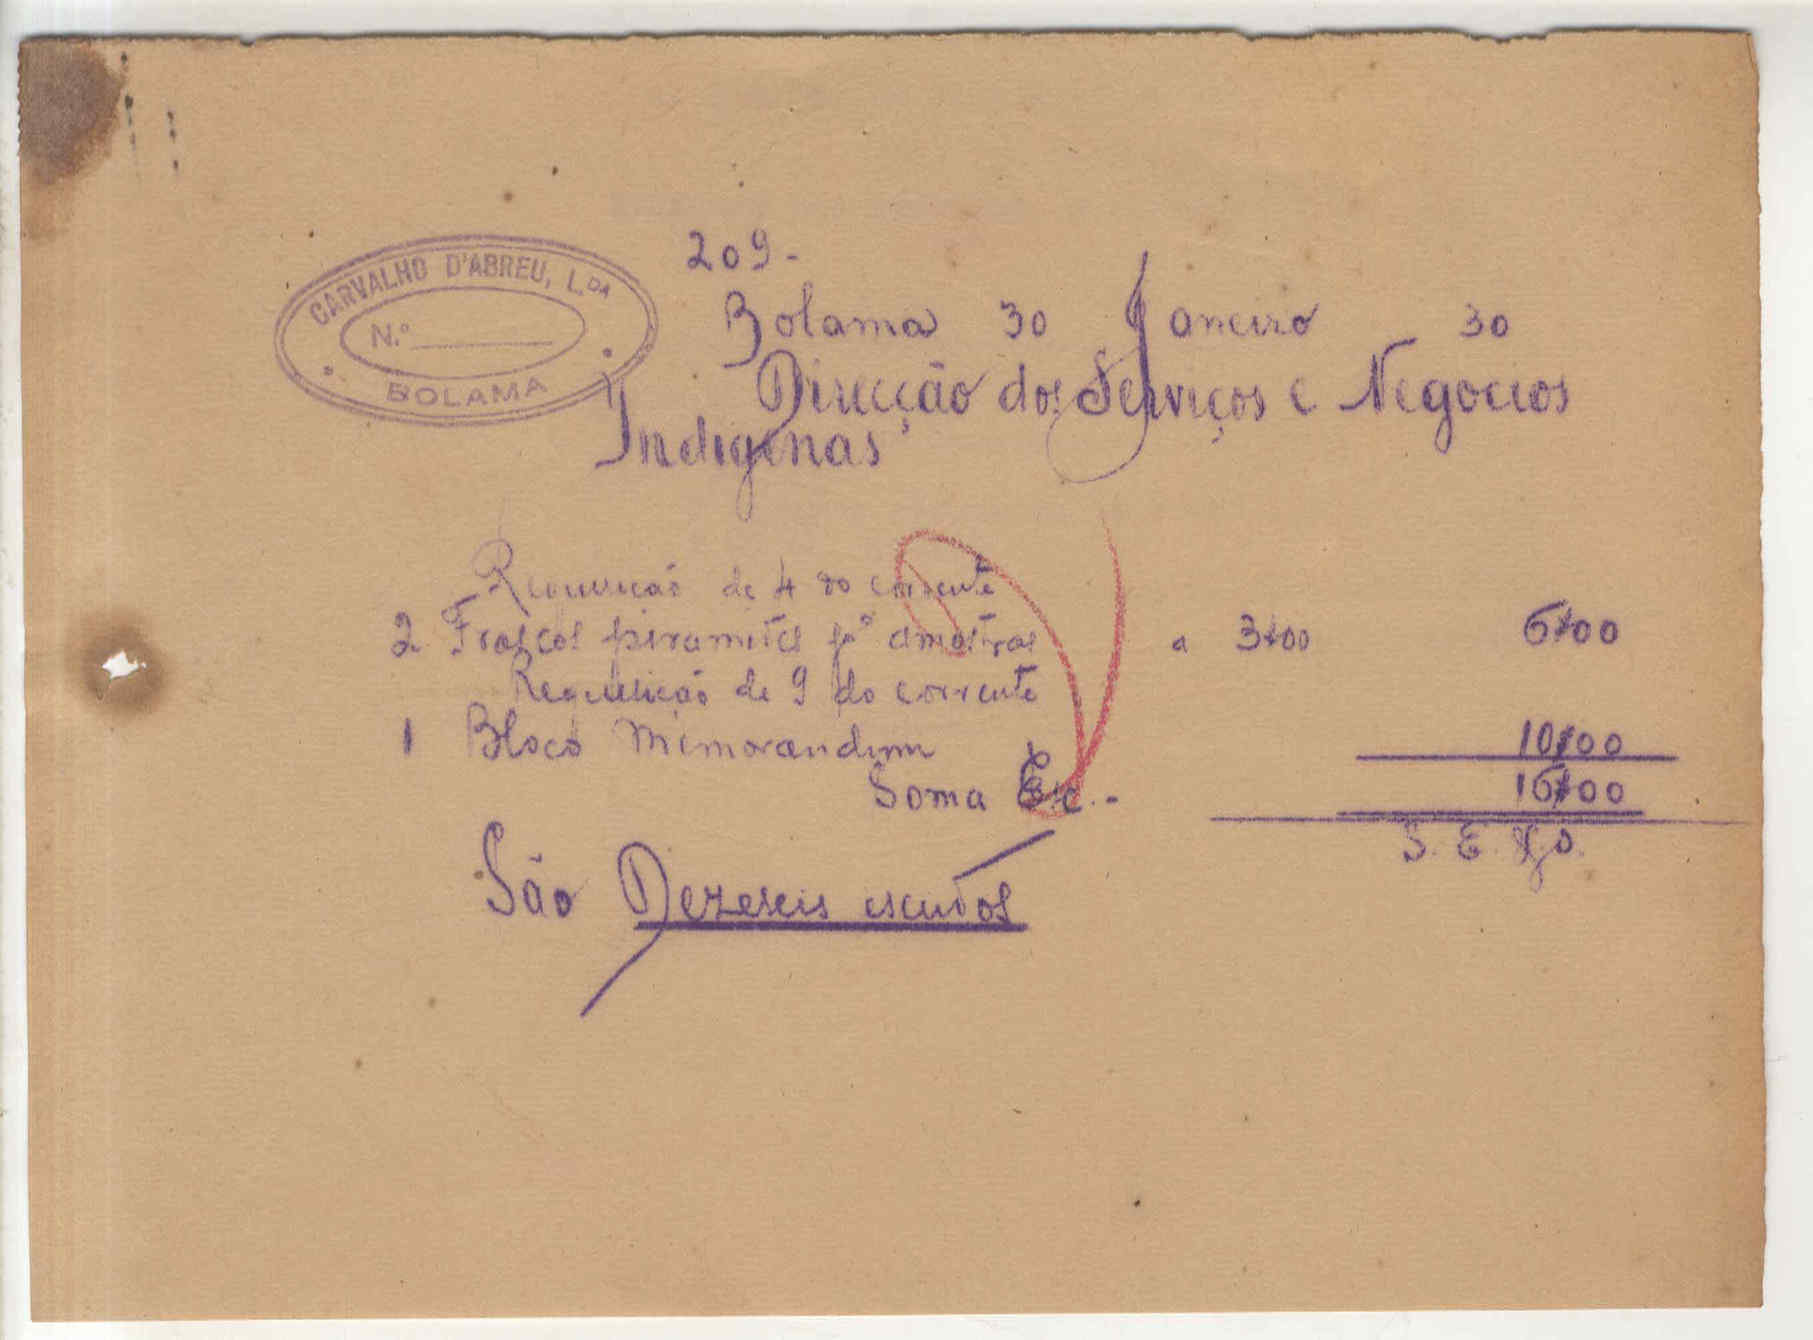 CARVALHO D'ABREU, L.DA
N.º
BOLAMA
209-
Bolama 30 Janeiro 30
Direcção dos Serviços e Negocios
Indigenas
Requisição de 4 do corrente
2 Frascos p.ª amostras a 3$00 6$00
Requisição de 9 do corrente
1 Bloco Memorandum 10$00
Soma Esc.- 16$00
S. E. O.
São Dezeseis escudos